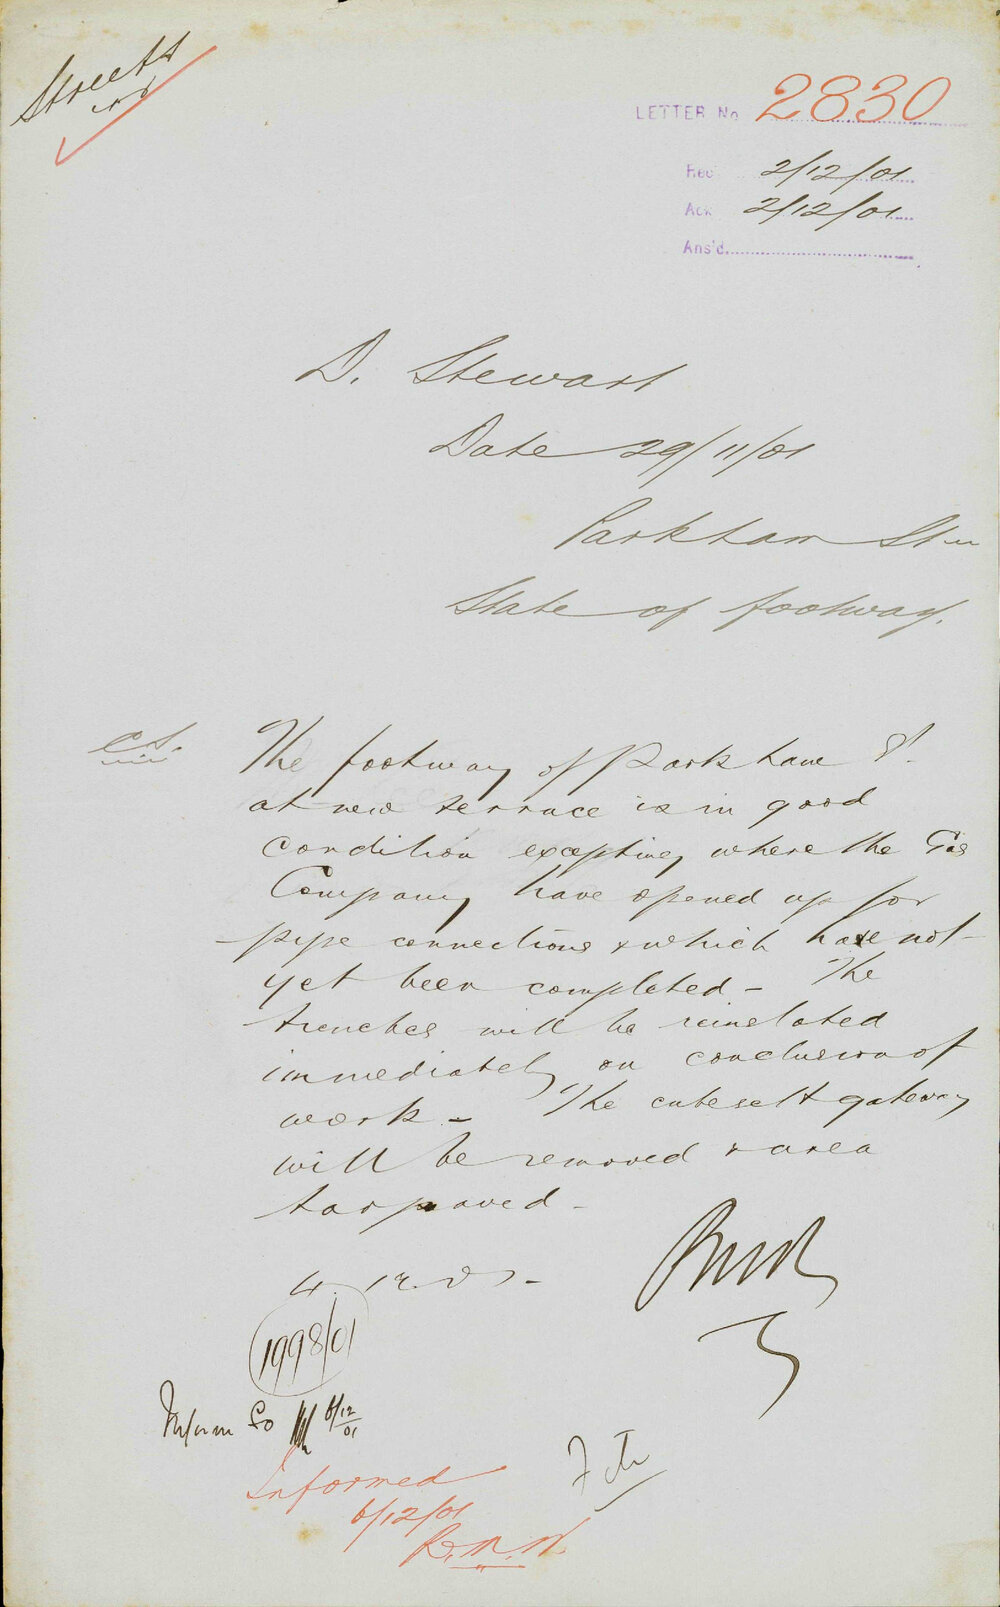 Streets
LETTER No 2830
Rec 2/12/01
Ack 2/12/01
Ans'd.
D. Stewart
Date 29/11/01
Parkham St
State of footway.
C.S. The footway of Parkham St.
at new terrace is in good
condition excepting where the Gas
Company have opened up for
pipe connections & which have not
yet been completed - The
trenches will be reinstated
immediately on conclusion of
work - The gateway
will be removed & area
tarpaved -
4.12.01 -
1998/01
Inform so 6/12/01
Informed
6/12/01
R.M.W.